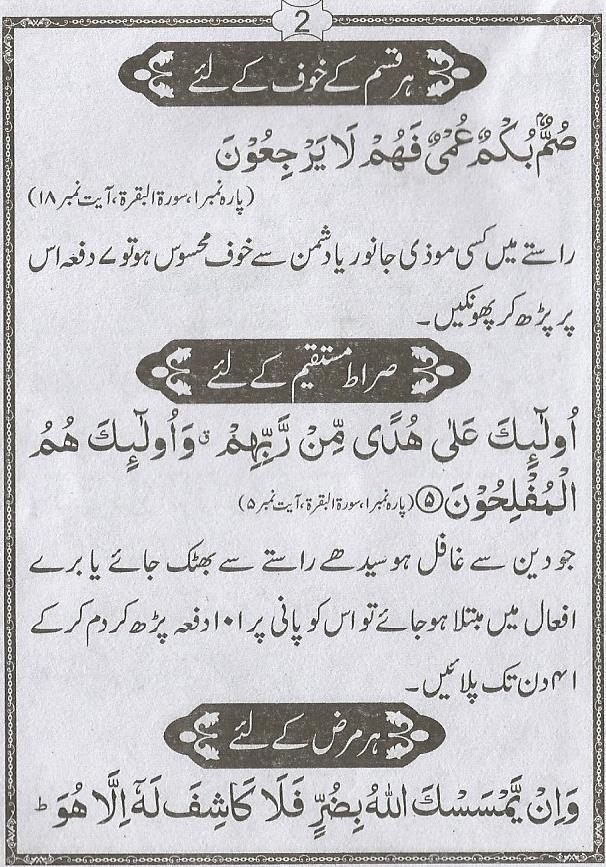 2
ہر قسم کے خوف کے لئے
صُمٌّۢ بُكْمٌ عُمْیٌ فَهُمْ لَا يَرْجِعُوْنَ
(پارہ نمبر ۱، سورۃ البقرۃ، آیت نمبر ۱۸)
راستے میں کسی موذی جانور یا دشمن سے خوف محسوس ہو تو ۷ دفعہ اس
پر پڑھ کر پھونکیں۔
صراط مستقیم کے لئے
اُولٰٓئِكَ عَلٰى هُدًى مِّنْ رَّبِّهِمْ ۗ وَاُولٰٓئِكَ هُمُ
الْمُفْلِحُوْنَ ﴿۵﴾ (پارہ نمبر ۱، سورۃ البقرۃ، آیت نمبر ۵)
جو دین سے غافل ہو سیدھے راستے سے بھٹک جائے یا برے
افعال میں مبتلا ہو جائے تو اس کو پانی پر ۱۰۱ دفعہ پڑھ کر دم کر کے
۴۱ دن تک پلائیں۔
ہر مرض کے لئے
وَاِنْ يَّمْسَسْكَ اللّٰهُ بِضُرٍّ فَلَا كَاشِفَ لَهٗٓ اِلَّا هُوَ ؕ